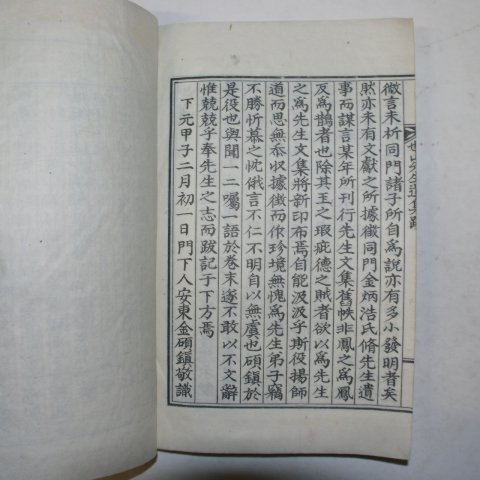 也山先生遺集跋
微言未析同門諸子所自為說亦有多小發明者矣
然亦未有文獻之所據徵同門金炳浩氏脩先生遺
事而謀言某年所刊行先生文集舊帙非鳳之為鳳
及為鵲者也除其王之瑕疵德之賊者欲以為先生
之為先生文集將新印布焉自能汲汲乎斯役揚師
道而思無忝収據徵而作珍境無愧為先生弟子竊
不勝忻慕之忱俄言不仁不明自以無虞也碩鎭於
是役也與聞一二囑一語於卷末遂不敢以不文辭
惟兢兢乎奉先生之志而跋記于下方焉
下元甲子二月初一日門下人安東金碩鎭敬識